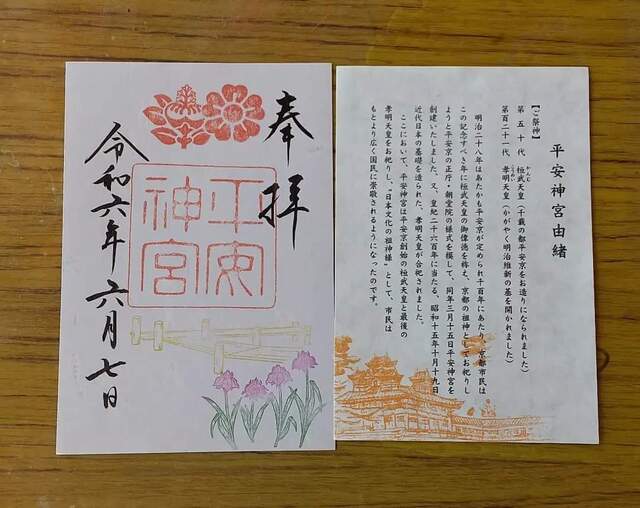 奉拝
平安神宮
令和六年六月七日
平安神宮由緒
【ご祭神】
第五十代 桓武天皇(千載の都平安京をお造りになられました)
かんむ
第百二十一代 孝明天皇(かがやく明治維新の基を開かれました)
こうめい
明治二十八年はあたかも平安京が定められ千百年にあたり、京都市民は
この記念すべき年に桓武天皇の御偉徳を称え、京都の祖神としてお祀りし
ようと平安京の正庁・朝堂院の様式を模して、同年三月十五日平安神宮を
創建いたしました。又、皇紀二千六百年に当たる、昭和十五年十月十九日
近代日本の基礎を造られた、孝明天皇が合祀されました。
ここにおいて、平安神宮は平安京創始の桓武天皇と最後の
孝明天皇をお祀りし、"日本文化の祖神様"として、市民は
もとより広く国民に崇敬されるようになったのです。